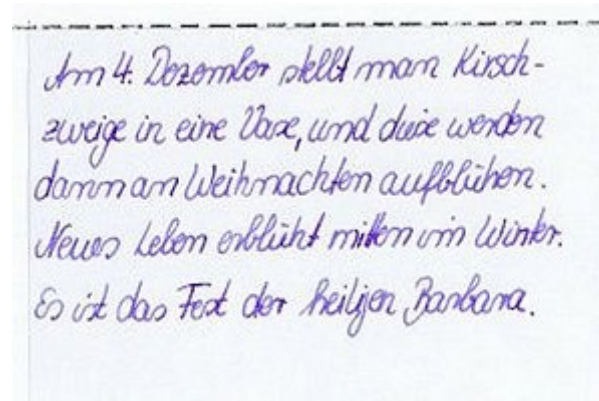 Am 4. Dezember stellt man Kirsch-
zweige in eine Vase, und diese werden
dann an Weihnachten aufblühen.
Neues Leben erblüht mitten im Winter.
Es ist das Fest der heiligen Barbara.